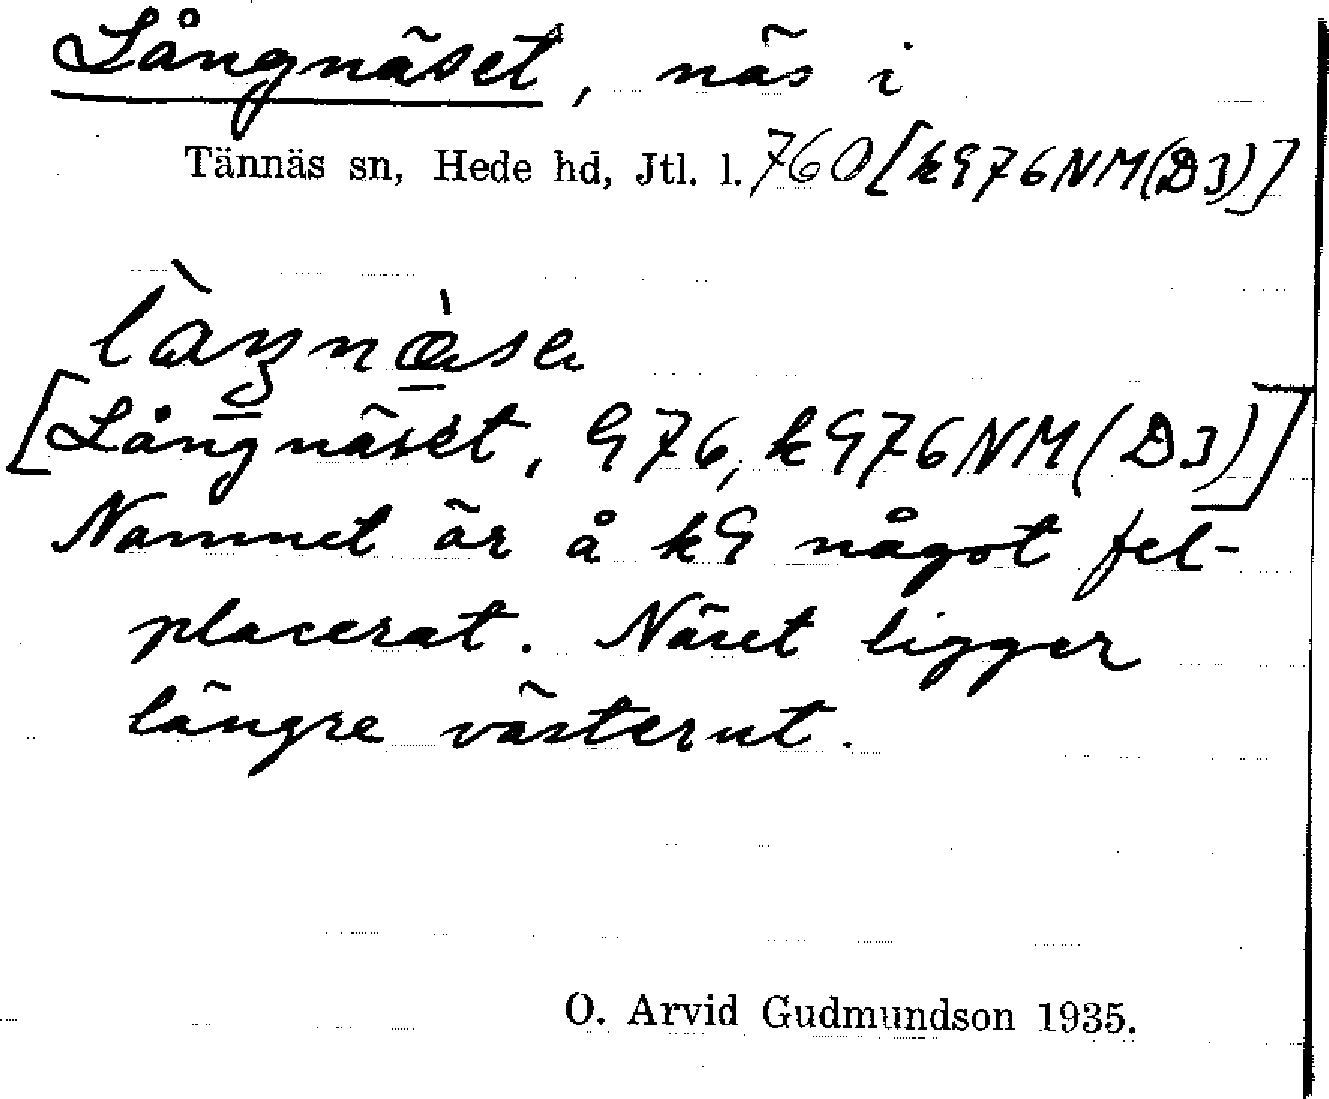 Långnäset, näs i
Tännäs sn, Hede hd, Jtl. l. 760 [kG76NM(D3)]
[Långnäset, G76, kG76NM(D3)]
Namnet är å kG något fel-
placerat. Näset ligger
längre västerut.
O. Arvid Gudmundson 1935.